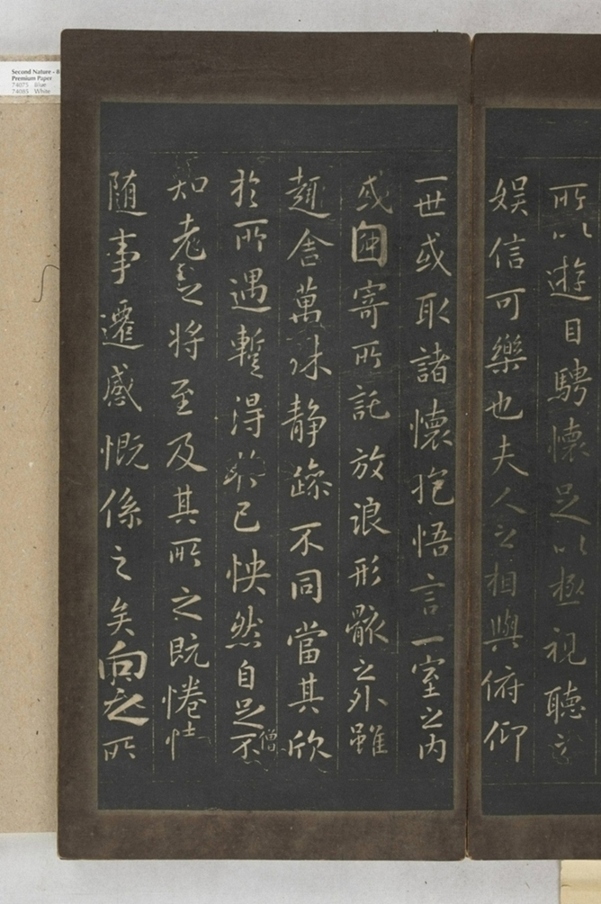 所以遊目騁懷足以極視聽之
娛信可樂也夫人之相與俯仰
一世或取諸懷抱悟言一室之內
或因寄所託放浪形骸之外雖
趣舍萬殊靜躁不同當其欣
於所遇蹔得於己怏然自足不
僧
知老之將至及其所之既惓
隨事遷感慨係之矣向之所
Second Nature - R
Premium Paper
74075 Blue
74085 White